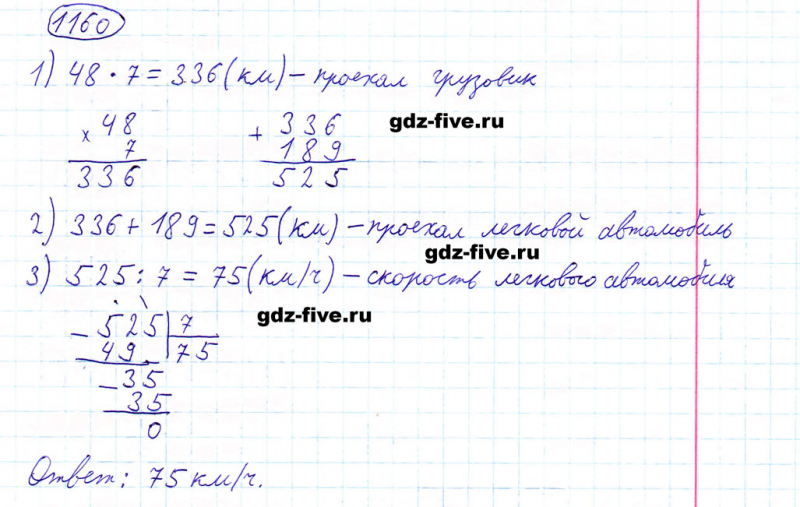 1160
1) 48 · 7 = 336 (км) – проехал грузовик
× 48
7
336
+ 336
189
525
gdz-five.ru
2) 336 + 189 = 525 (км) – проехал легковой автомобиль
gdz-five.ru
3) 525 : 7 = 75 (км/ч) – скорость легкового автомобиля
gdz-five.ru
– 525 | 7
49 | 75
– 35
35
0
Ответ: 75 км/ч.